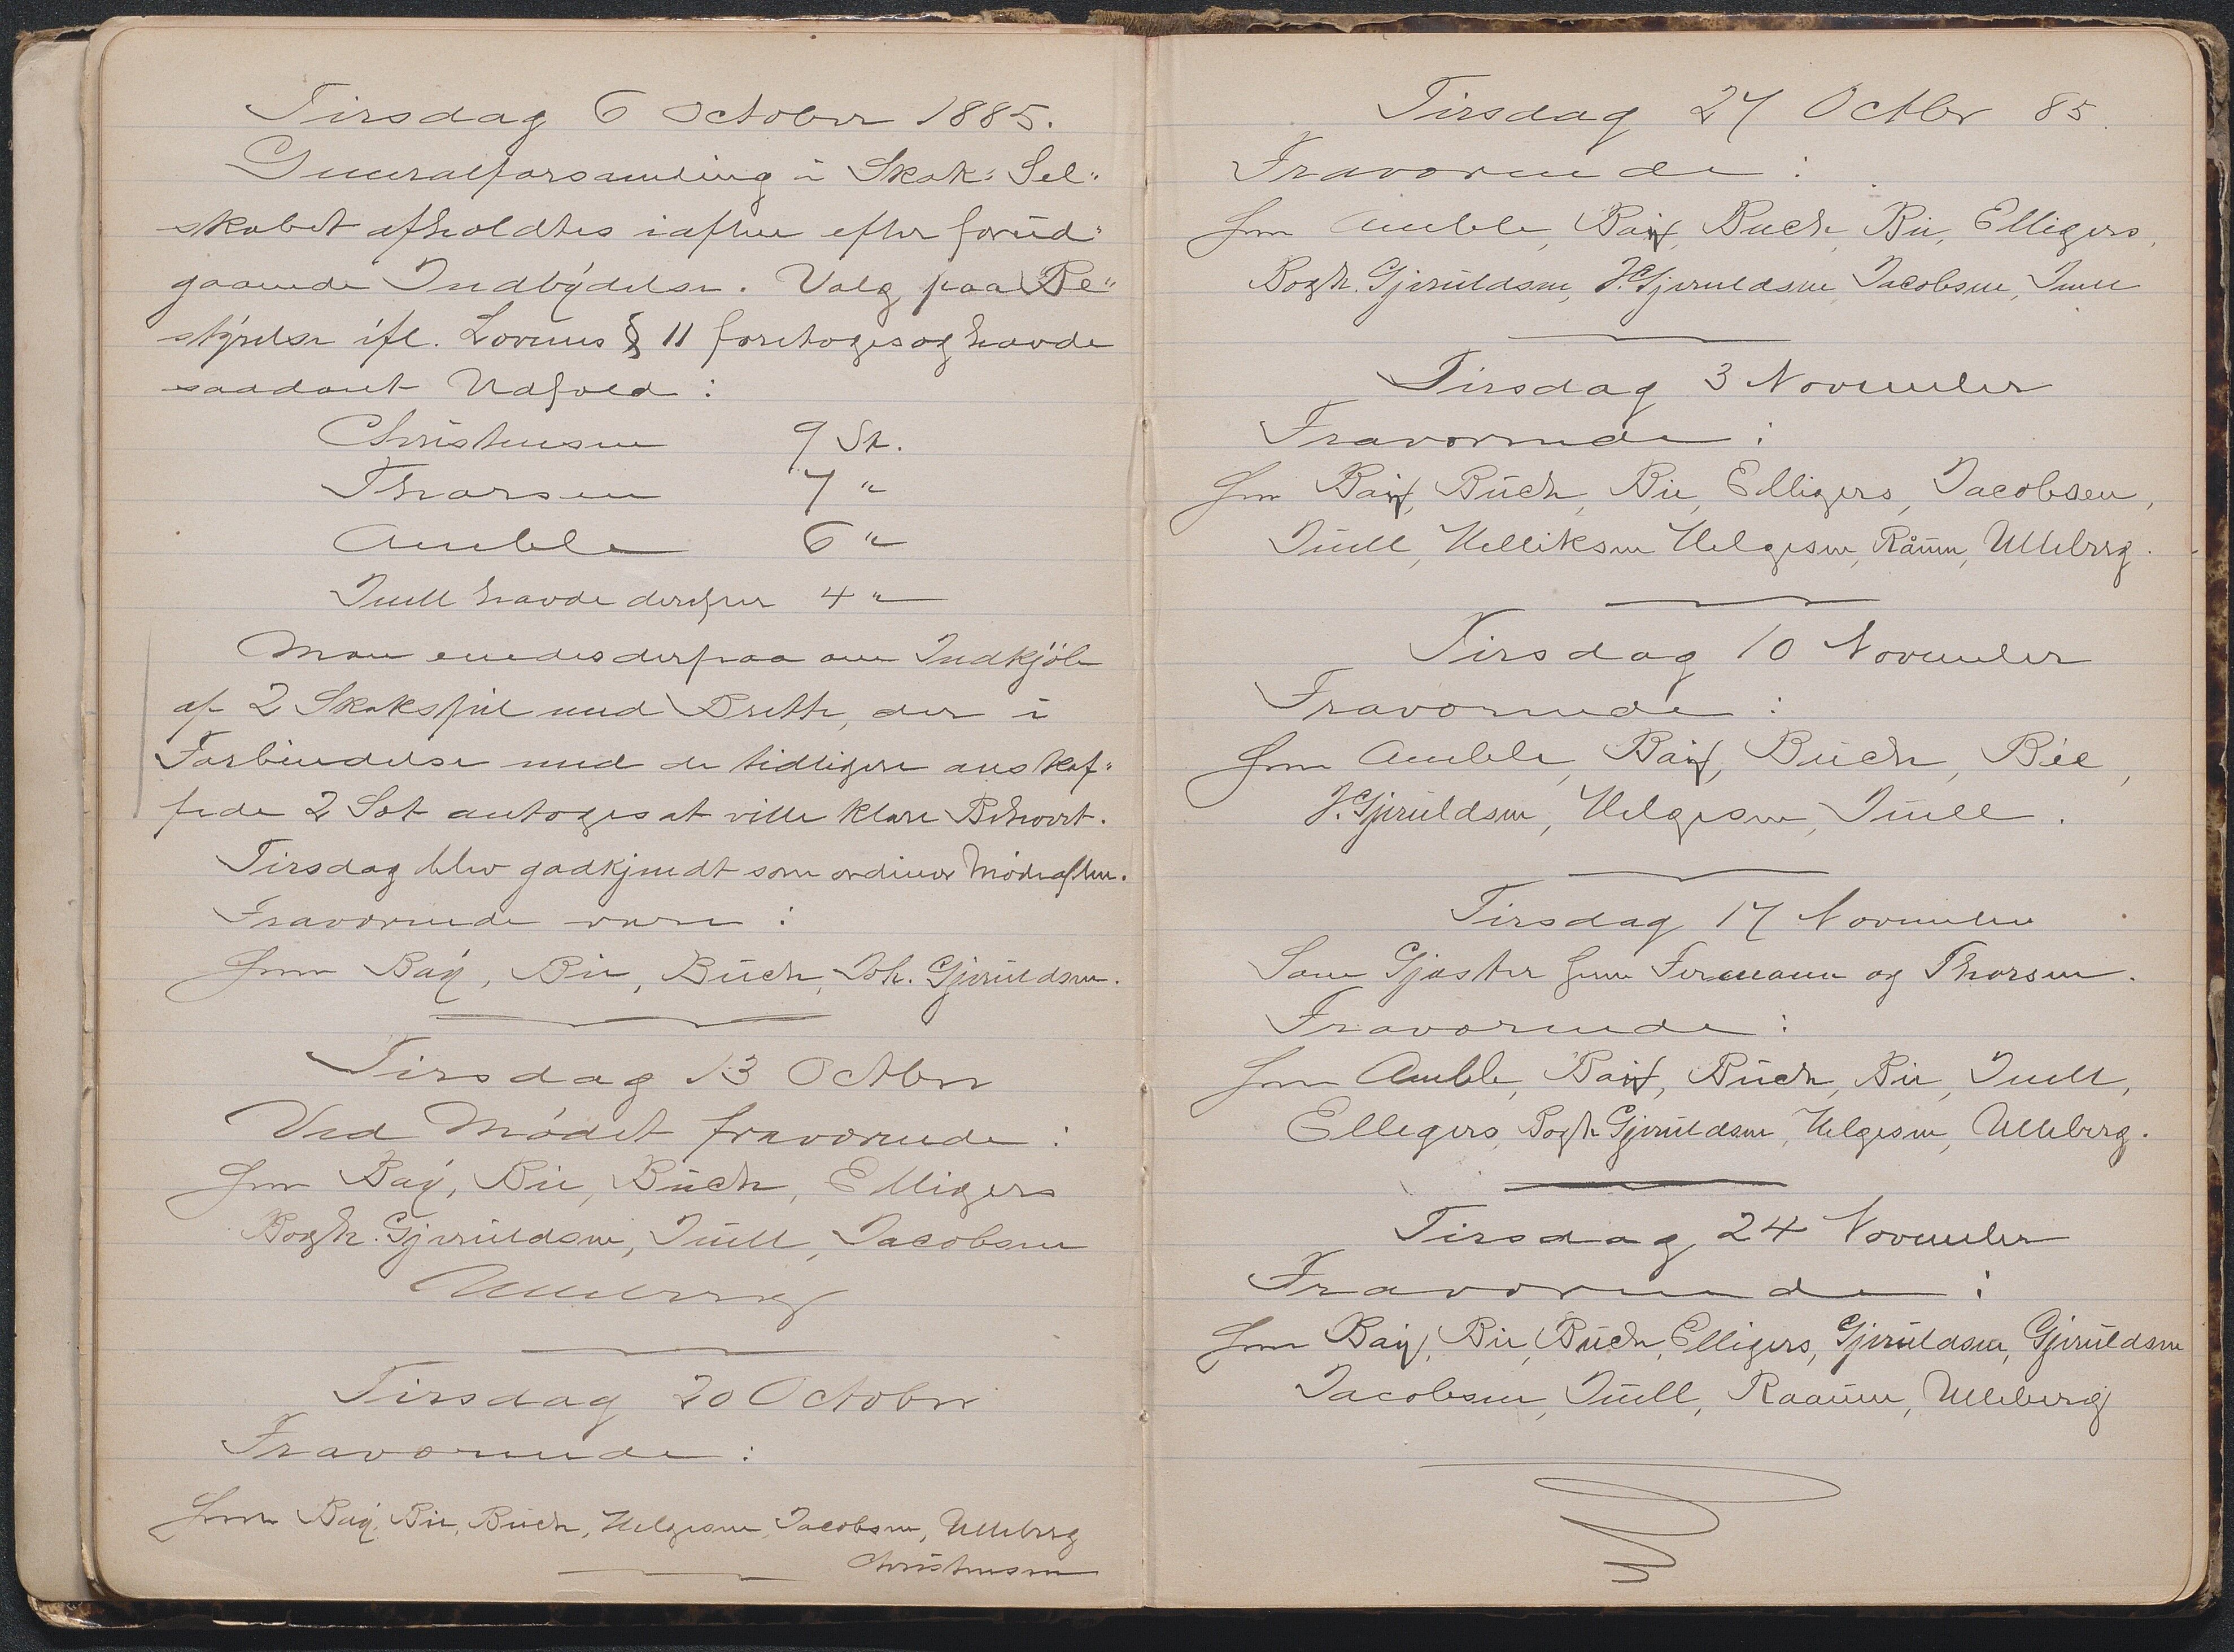 Tirsdag 6 October 1885.
Generalforsamling i Skak: Sel"
skabet afholdtes iaften efter forud"
gaaende Indbydelse. Valg paa Be"
styrelse ifl. Lovenes § 11 foretoges og havde
saadant Udfald:
Christensen 9 St.
Thorsen 7 "
Amble 6 "
Juell havde derefter 4 "
Man enedes derpaa om Indkjøb
af 2 Skakspil med Bretter, der i
Forbindelse med de tidligere anskaf"
fede 2 Sæt antoges at ville klare Behovet.
Tirsdag blev godkjendt som ordinær Mødeaften.
Fraværende vare:
Hrr Bay, Bie, Buch, Joh. Gjeruldsen.
Tirsdag 13 Octber
Ved Mødet fraværende:
Hrr Bay, Bie, Buch, Elligers
Bogh. Gjeruldsen, Juell, Jacobsen
Ulleberg
Tirsdag 20 October
Fraværende:
Hrr Bay, Bie, Buch, Helgesen, Jacobsen, Ulleberg
Christensen
Tirsdag 27 Octbr 85.
Fraværende:
Hrr Amble, Bay, Buch, Bie, Elligers,
Bogh. Gjeruldsen, J. Gjeruldsen, Jacobsen, Juell
Tirsdag 3 November
Fraværende:
Hrr Bay, Buch, Bie, Elligers, Jacobsen,
Juell, Helliksen Helgesen, Råum, Ulleberg.
Tirsdag 10 November
Fraværende:
Hrr Amble, Bay, Buch, Bie,
J. Gjeruldsen, Helgesen, Juell.
Tirsdag 17 November
Som Gjæster Hrr Fermann og Thorsen.
Fraværende:
Hrr Amble, Bay, Buch, Bie, Juell,
Elligers, Bogh Gjeruldsen, Helgesen, Ulleberg.
Tirsdag 24 November
Fraværende:
Hrr Bay, Bie, Buch, Elligers, Gjeruldsen, Gjeruldsen
Jacobsen, Juell, Raaum, Ulleberg